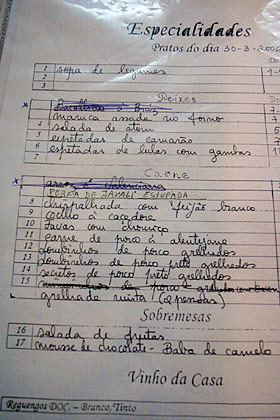 Especialidades
Pratos do dia 30-3-200
1 sopa de legumes
2
3
Peixes
maruca assada no forno
4 salada de atum
5 espetadas de camarão
6 espetadas de lulas com gambas
7
Carne
PERNA DE JAVALI ESTUFADA
8 chispalhada com feijão branco
9 coelho à caçadora
10 favas com chouriço
11 carne de porco à alentejana
12 lombinhos de porco grelhados
13 lombinhos de porco preto grelhados
14 secretos de porco preto grelhados
15 de porco
grelhada mista (2 pessoas)
Sobremesas
16 salada de frutas
17 mousse de chocolat - Baba de camelo
Vinho da Casa
Reguengos DOC. - Branco/Tinto